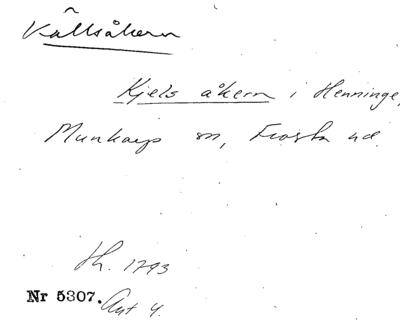 Källsåkern
Kjels åkern i Henninge,
Munkarp sn, Frosta hd.
Sk. 1793
Nr 5307. Akt 4.